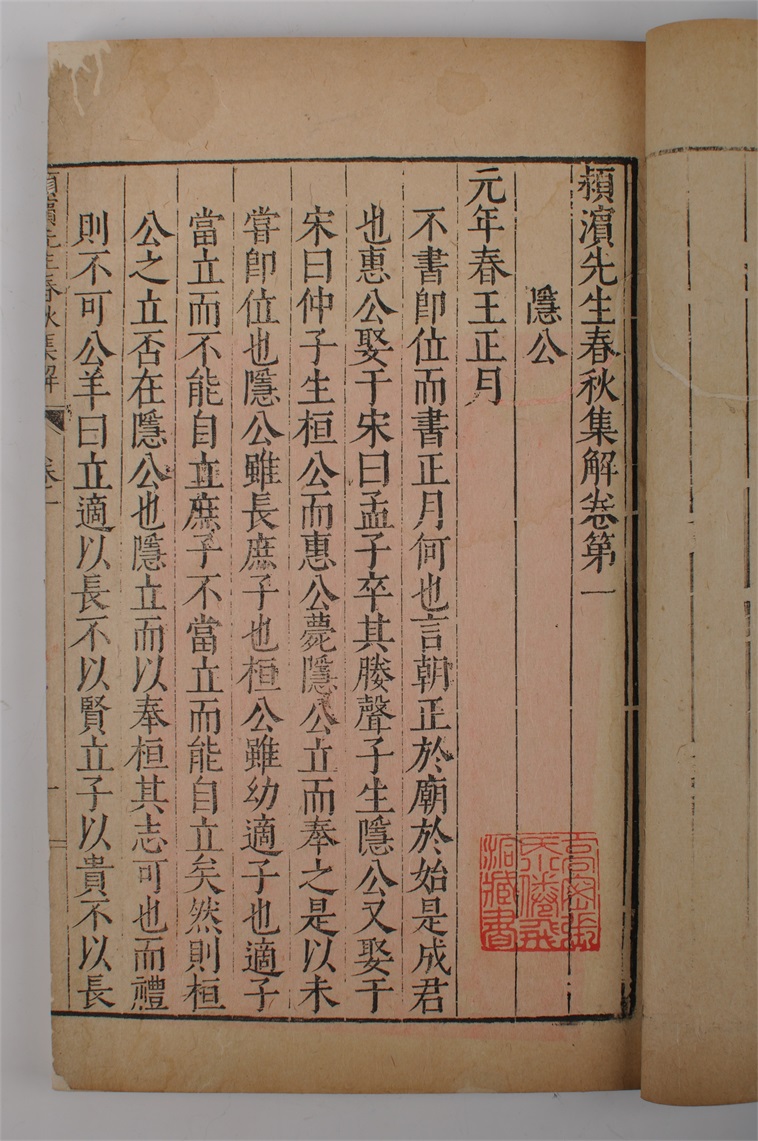 潁濱先生春秋集解卷第一
隱公
元年春王正月
不書卽位而書正月何也言朝正於廟於始是成君
也惠公娶于宋曰孟子卒其媵聲子生隱公又娶于
宋曰仲子生桓公而惠公薨隱公立而奉之是以未
嘗卽位也隱公雖長庶子也桓公雖幼適子也適子
當立而不能自立庶子不當立而能自立矣然則桓
公之立否在隱公也隱立而以奉桓其志可也而禮
則不可公羊曰立適以長不以賢立子以貴不以長
潁濱先生春秋集解 卷一
一